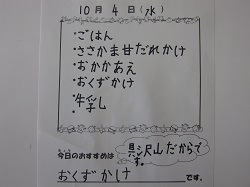 10月4日(水)
・ごはん
・ささかま甘だれかけ
・おかかあえ
・おくずかけ
・牛乳
今日のおすすめは
具沢山だからです。
おくずかけです。